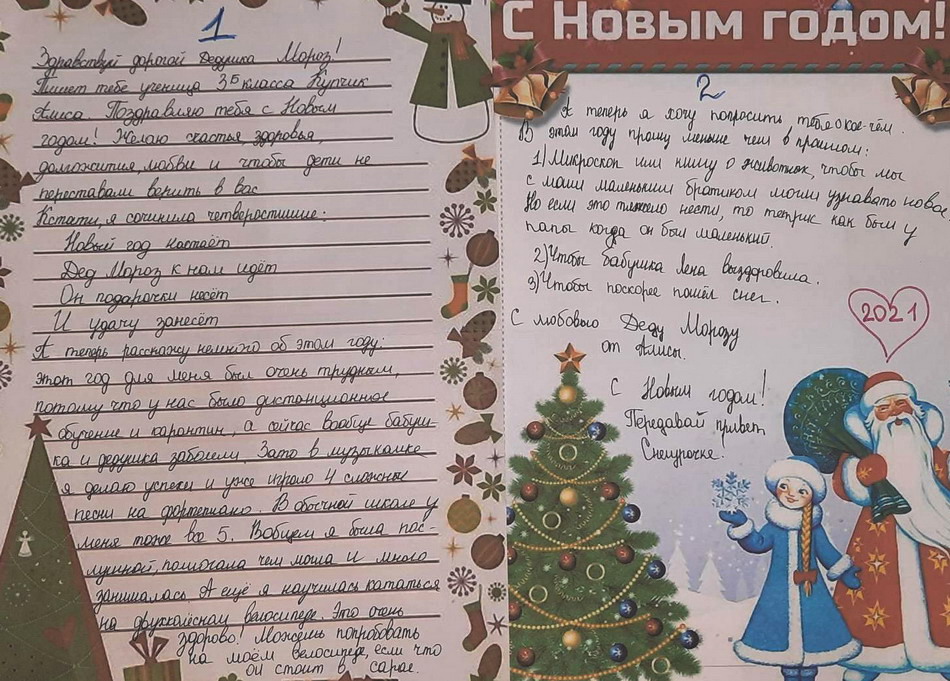 1
Здравствуй дорогой Дедушка Мороз!
Пишет тебе ученица 3Б класса Купчик
Алиса. Поздравляю тебя с Новым
годом! Желаю счастья, здоровья,
долгожития, любви и чтобы дети не
переставали верить в вас
Кстати, я сочинила четверостишие:
Новый год настаёт
Дед Мороз к нам идёт
Он подарочки несёт
И удачу занесёт
А теперь расскажу немного об этом году:
этот год для меня был очень трудным,
потому что у нас было дистанционное
обучение и карантин, а сейчас вообще бабуш-
ка и дедушка заболели. Зато в музыкалке
я делаю успехи и уже играю 4 сложные
песни на фортепиано. В обычной школе у
меня тоже все 5. Вобщем я была пос-
лушной, помогала чем могла и много
занималась А ещё я научилась кататься
на двухколёсном велосипеде. Это очень
здорово! Можешь попробовать
на моём велосипеде, если что
он стоит в сарае.
С Новым годом!
2
А теперь я хочу попросить тебя о кое-чём.
В этом году прошу меньше чем в прошлом:
1) Микроскоп или книгу о животных, чтобы мы
с моим маленьким братиком могли узнавать новое,
Но если это тяжело нести, то тетрис как был у
папы когда он был маленький.
2) Чтобы бабушка Лена выздоровила.
3) Чтобы поскорее пошёл снег.
С любовью Деду Морозу
от Алисы.
2021
С Новым годом!
Передавай привет
Снегурочке.